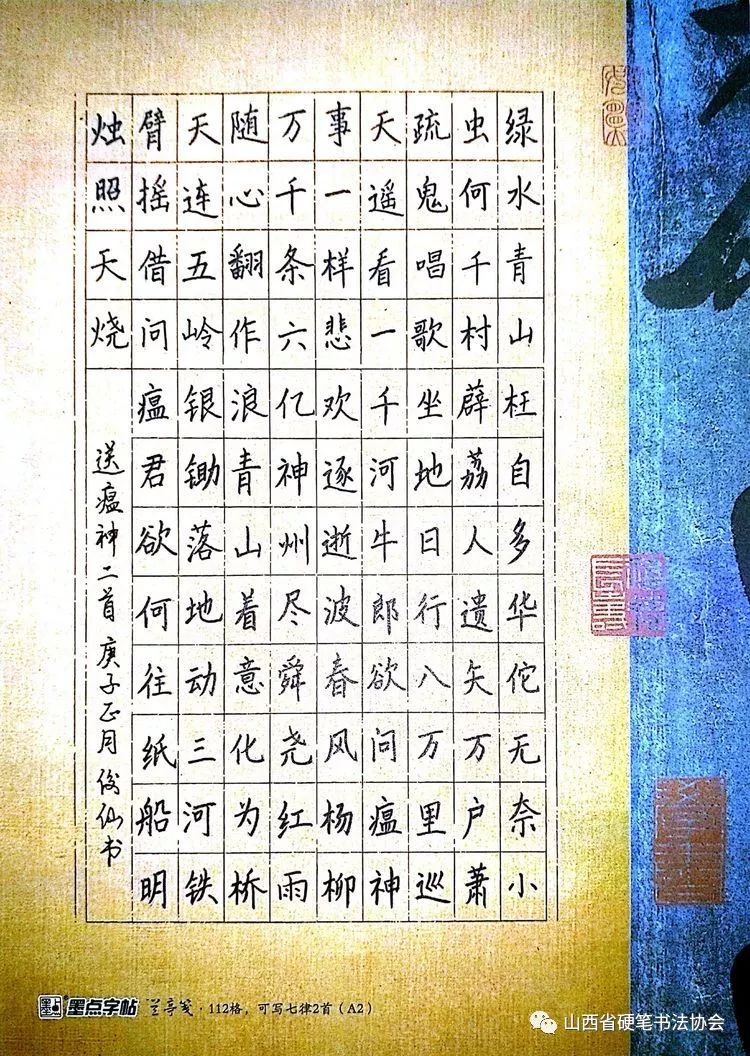 绿水青山枉自多华佗无奈小
虫何千村薜荔人遗矢万户萧
疏鬼唱歌坐地日行八万里巡
天遥看一千河牛郎欲问瘟神
事一样悲欢逐逝波春风杨柳
万千条六亿神州尽舜尧红雨
随心翻作浪青山着意化为桥
天连五岭银锄落地动三河铁
臂摇借问瘟君欲何往纸船明
烛照天烧
送瘟神二首 庚子正月俊仙书
墨点字帖 兰亭笺·112格，可写七律2首（A2）
山西省硬笔书法协会